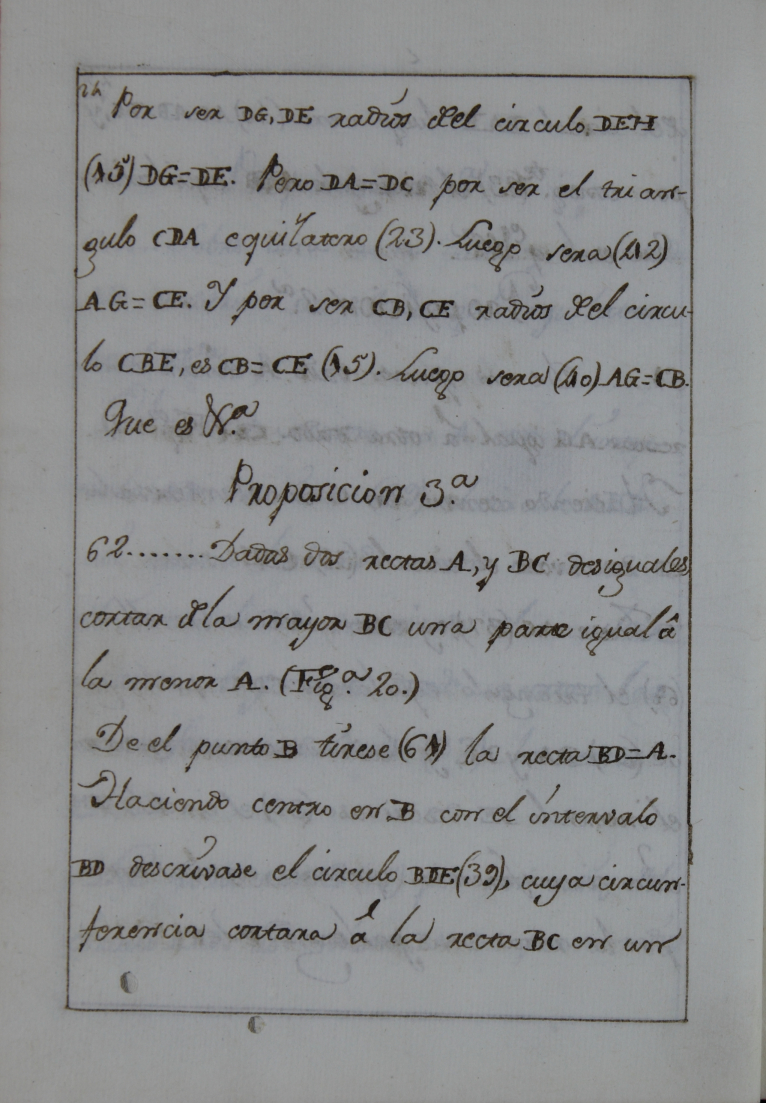 24
Por ser DG, DE radios del circulo, DEH
(15) DG=DE. Pero DA=DC por ser el trian-
gulo CDA equilatero (23). Luego sera (42)
AG=CE. Y por ser CB, CE radios del circu-
lo CBE, es CB=CE (15). Luego sera (40) AG=CB.
Que es
Proposicion 3.ª
62....... Dadas dos rectas A, y BC desiguales
cortar de la mayor BC una parte igual â
la menor A. (Fig.ª 20.)
De el punto B tirese (61) la recta BD=A.
Haciendo centro en B con el intervalo
BD descrivase el circulo BDE (39), cuya circun-
ferencia cortara á la recta BC en un